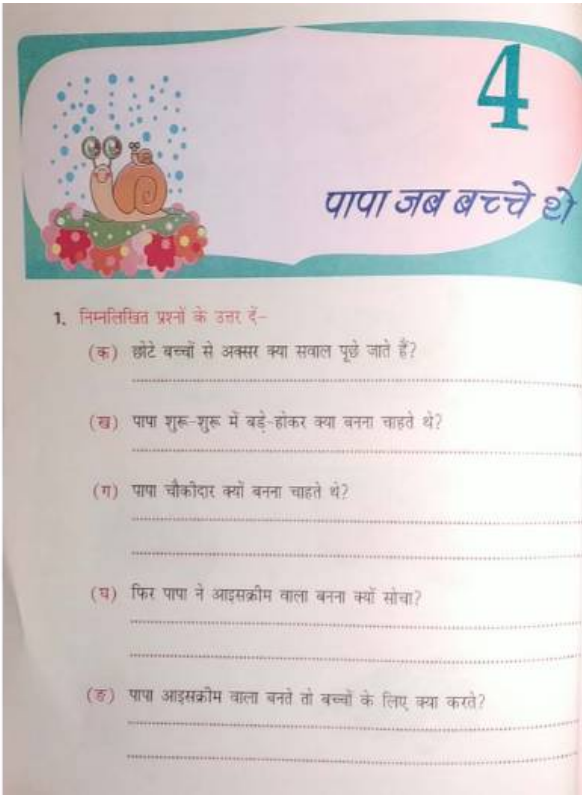 4
पापा जब बच्चे थे
1. निम्नलिखित प्रश्नों के उत्तर दें–
(क) छोटे बच्चों से अक्सर क्या सवाल पूछे जाते हैं?
(ख) पापा शुरू-शुरू में बड़े-होकर क्या बनना चाहते थे?
(ग) पापा चौकीदार क्यों बनना चाहते थे?
(घ) फिर पापा ने आइसक्रीम वाला बनना क्यों सोचा?
(ङ) पापा आइसक्रीम वाला बनते तो बच्चों के लिए क्या करते?